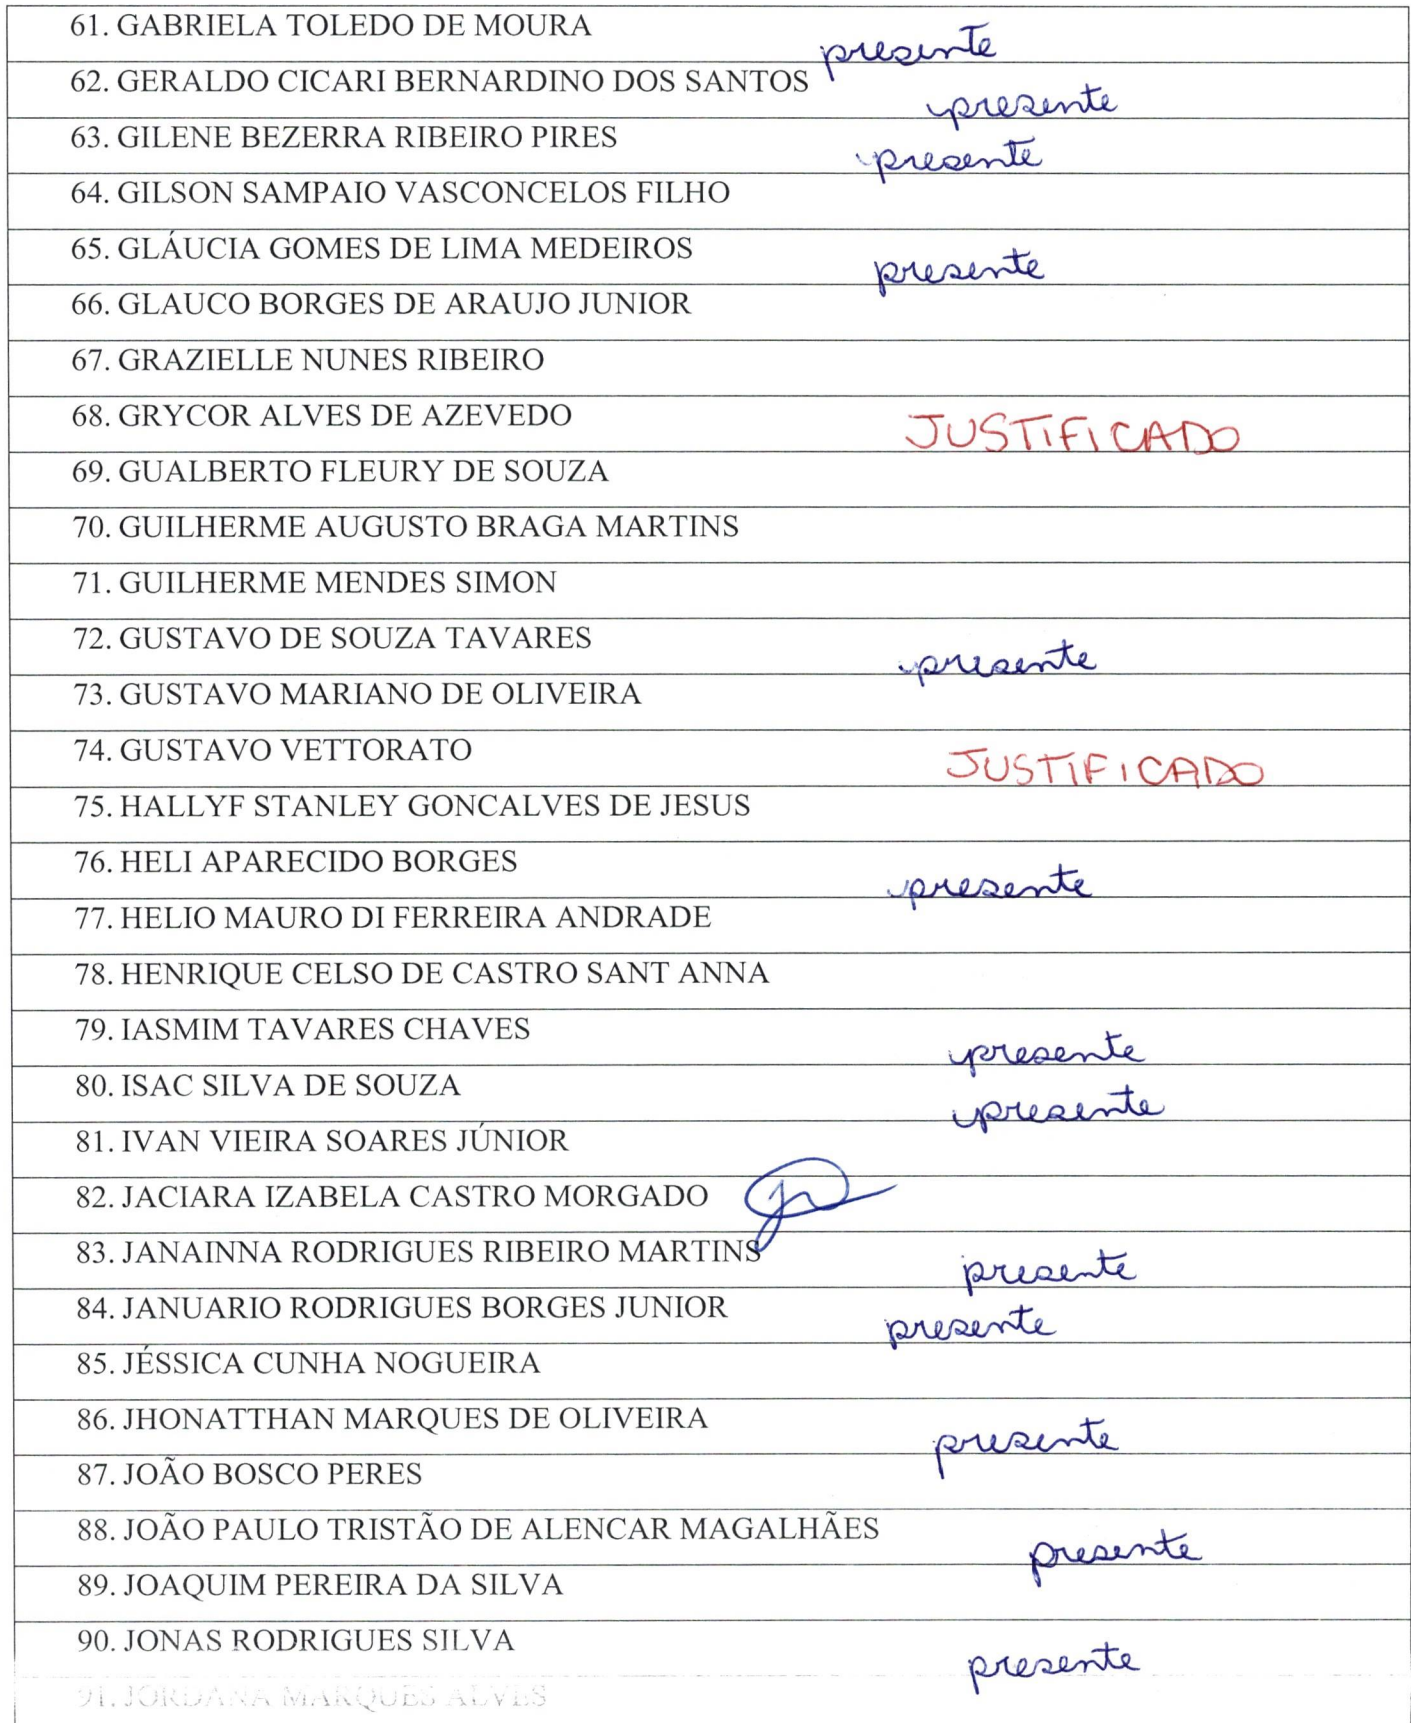 61. GABRIELA TOLEDO DE MOURA presente
62. GERALDO CICARI BERNARDINO DOS SANTOS presente
63. GILENE BEZERRA RIBEIRO PIRES presente
64. GILSON SAMPAIO VASCONCELOS FILHO
65. GLÁUCIA GOMES DE LIMA MEDEIROS presente
66. GLAUCO BORGES DE ARAUJO JUNIOR
67. GRAZIELLE NUNES RIBEIRO
68. GRYCOR ALVES DE AZEVEDO JUSTIFICADO
69. GUALBERTO FLEURY DE SOUZA
70. GUILHERME AUGUSTO BRAGA MARTINS
71. GUILHERME MENDES SIMON
72. GUSTAVO DE SOUZA TAVARES presente
73. GUSTAVO MARIANO DE OLIVEIRA
74. GUSTAVO VETTORATO JUSTIFICADO
75. HALLYF STANLEY GONCALVES DE JESUS
76. HELI APARECIDO BORGES presente
77. HELIO MAURO DI FERREIRA ANDRADE
78. HENRIQUE CELSO DE CASTRO SANT ANNA
79. IASMIM TAVARES CHAVES presente
80. ISAC SILVA DE SOUZA presente
81. IVAN VIEIRA SOARES JÚNIOR
82. JACIARA IZABELA CASTRO MORGADO
83. JANAINNA RODRIGUES RIBEIRO MARTINS presente
84. JANUARIO RODRIGUES BORGES JUNIOR presente
85. JÉSSICA CUNHA NOGUEIRA
86. JHONATTHAN MARQUES DE OLIVEIRA presente
87. JOÃO BOSCO PERES
88. JOÃO PAULO TRISTÃO DE ALENCAR MAGALHÃES presente
89. JOAQUIM PEREIRA DA SILVA
90. JONAS RODRIGUES SILVA presente
91. JORDANA MARQUES ALVES